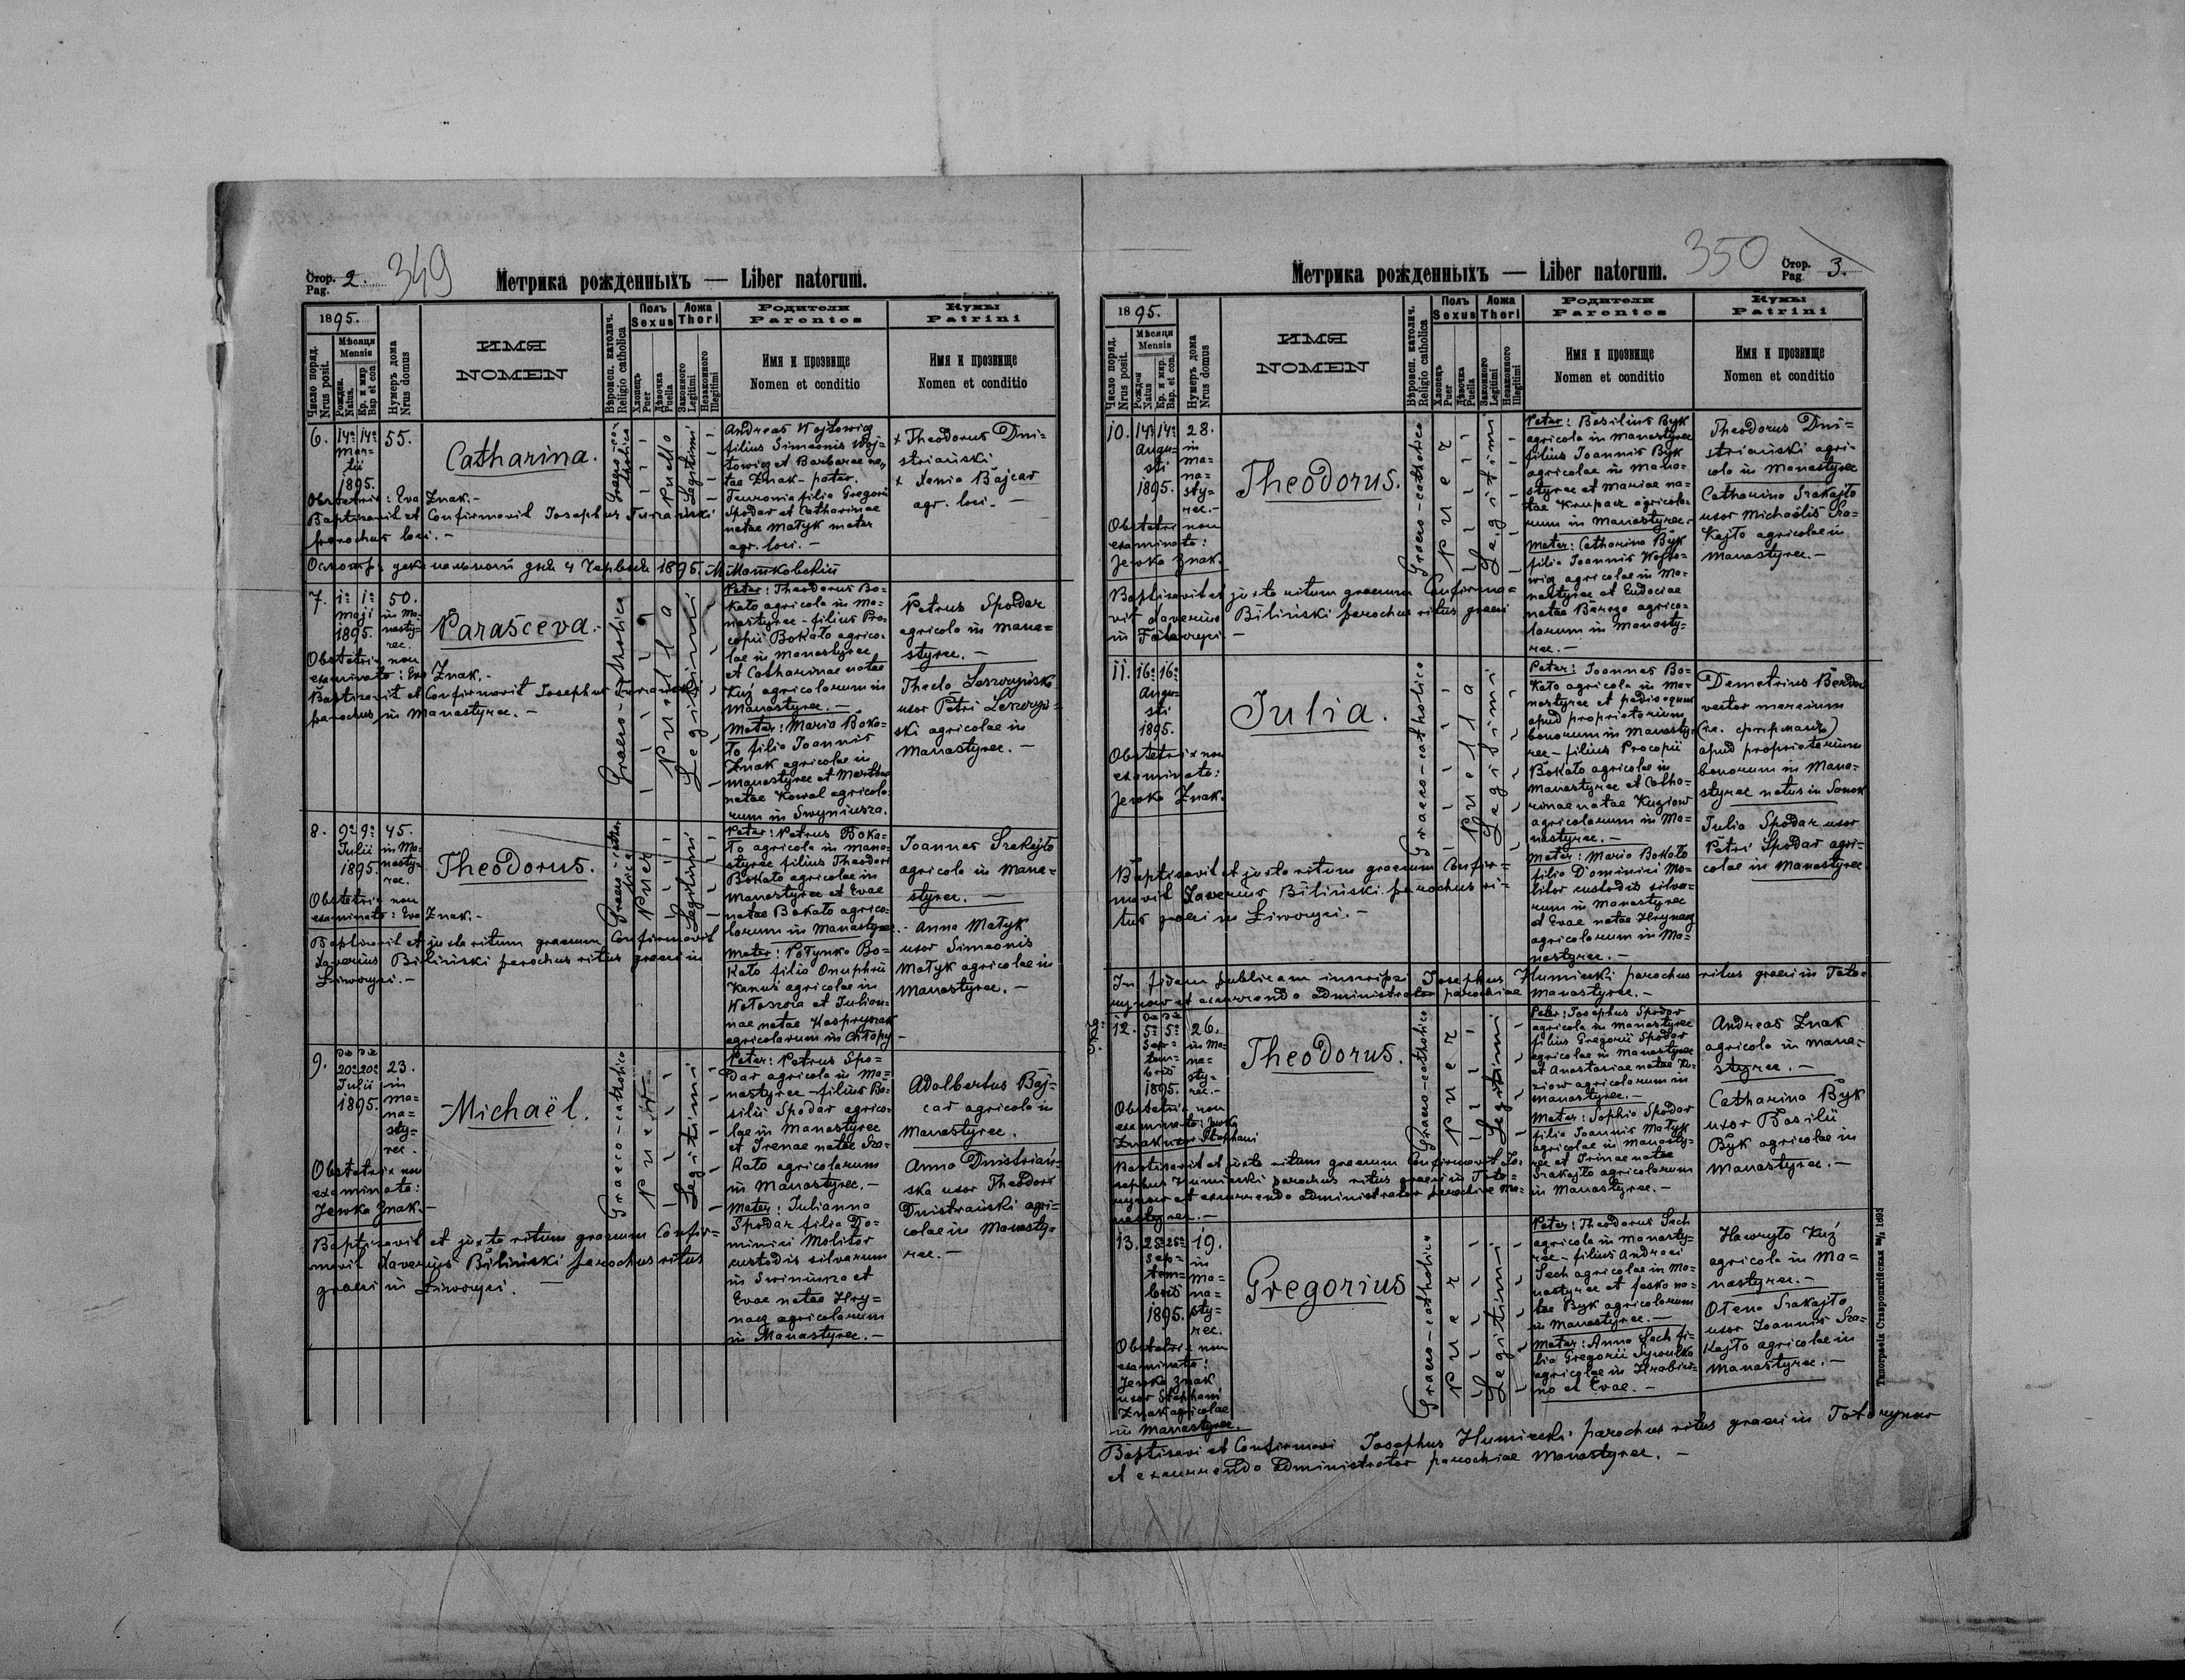 Стор. Pag. 2. 349
Метрика рожденныхъ — Liber natorum.
1895.
Число поряд. Nrus posit.
Мѣсяця Mensis
Рожден. Natus.
Кр. и мир. Bap. et con.
Нумеръ дома Nrus domus
ИМЯ
NOMEN
Вѣроисп. католич. Religio catholica
Полъ Sexus
Хлопець Puer
Дѣвочка Puella
Ложа Thori
Законного Legitimi
Незаконного Illegitimi
Родители
Parentes
Имя и прозвище
Nomen et conditio
Кумы
Patrini
Имя и прозвище
Nomen et conditio
6. 14a 14a 55.
Mar-
tii
1895.
Catharina.
Graeco-ca-
tholica
Puella
Legitimi
Andreas Wojtowicz
filius Simeonis Woj-
towicz et Barbarae na-
tae Znak - pater.
filia Gregorii
Spodar et Catharinae
natae Matyk mater
agr. loci. -
+ Theodorus Dni-
striański
+ Xenia Bajcar
agr. loci. -
Obstetrix: Eva Znak.-
Baptisavit et Confirmavit Josephus
parochus loci. -
1895.
7. 1a 1a 50.
Maji in Ma-
1895. nasty-
rec.
Parasceva.
Graeco-catholica
Puella
Legitimi
Pater: Theodorus Bo-
kało agricola in Ma-
nastyrec - filius Pro-
copii Bokało agrico-
lae in Manastyrec
et Catharinae natae
Kuź agricolarum in
Manastyrec. -
Mater: Maria Boka-
ło filia Joannis
Znak agricolae in
Manastyrec et Marthae
natae Kowal agricola-
rum in Swyniusza.
Petrus Spodar
agricola in Mana-
styrec. -
Thecla
uxor Petri
ski agricolae in
Manastyrec. -
Obstetrix non
examinata: Eva Znak.-
Baptisavit et Confirmavit Josephus
parochus in Manastyrec. -
8. 9a 9a 45.
Julii in Ma-
1895. nasty-
rec.
Theodorus.
Graeco-cathol-
ica
Puer
Legitimi
Pater: Petrus Boka-
ło agricola in Mana-
styrec filius Theodori
Bokało agricolae in
Manastyrec et Evae
natae Bokało agrico-
larum in Manastyrec. -
Mater: Połynka Bo-
kało filia Onuphrii
Kanuś agricolae in
Wołoszcza et Julian-
nae natae Kaspryszak
agricolarum in Chłopy -
Joannes Szakajło
agricola in Mana-
styrec. -
Anna Matyk
uxor Simeonis
Matyk agricolae in
Manastyrec. -
Obstetrix non
examinata: Eva Znak.-
Baptisavit et juxta ritum graecum Confirmavit
Xaverius Biliński parochus ritus graeci in
9. 20a 20a 23.
Julii in
1895. Ma-
na-
sty-
rec.
Michaël.
Graeco-catholica
Puer
Legitimi
Pater: Petrus Spo-
dar agricola in Ma-
nastyrec - filius Ba-
silii Spodar agrico-
lae in Manastyrec
et Irenae natae
agricolarum
in Manastyrec. -
Mater: Julianna
Spodar filia Do-
minici Molitor
custodis silvarum
in Swiniusza et
Evae natae Hry-
nacz agricolarum
in Manastyrec. -
Adalbertus Baj-
car agricola in
Manastyrec.
Anna Dnistriań-
ska uxor Theodori
Dnistriański agri-
colae in Manasty-
rec. -
Obstetrix non
examinata:
Jewka Znak.-
Baptisavit et juxta ritum graecum Confir-
mavit Xaverius Biliński parochus ritus
graeci in
Метрика рожденныхъ — Liber natorum. 350 Стор. Pag. 3.
1895.
Число поряд. Nrus posit.
Мѣсяця Mensis
Рожден. Natus
Кр. и мир. Bap. et con.
Нумеръ дома Nrus domus
ИМЯ
NOMEN
Вѣроисп. католич. Religio catholica
Полъ Sexus
Хлопець Puer
Дѣвочка Puella
Ложа Thori
Законного Legitimi
Незаконного Illegitimi
Родители
Parentes
Имя и прозвище
Nomen et conditio
Кумы
Patrini
Имя и прозвище
Nomen et conditio
10. 14a 14a 28.
Augu- in
sti Ma-
1895. na-
sty-
rec.-
Theodorus.
Graeco-catholica
Puer
Legitimi
Pater: Basilius Byk
agricola in Manastyrec
filius Joannis Byk
agricolae in Mana-
styrec et Mariae na-
tae Krupacz agricola-
rum in Manastyrec.-
Mater: Catharina Byk
filia Joannis Wojto-
wicz agricolae in Ma-
nastyrec et Eudociae
natae agrico-
larum in Manasty-
rec. -
Theodorus Dni-
striański agri-
cola in Manastyrec
Catharina Szakajło
uxor Michaëlis Sza-
kajło agricolae in
Manastyrec. -
Obstetrix non
examinata:
Jewka Znak.
Baptisavit et juxta ritum graecum Confirma-
vit Xaverius Biliński parochus ritus graeci
in -
11. 16a 16a
Augu-
sti
1895.
Julia.
Graeco-catholica
Puella
Legitimi
Pater: Joannes Bo-
kało agricola in Ma-
nastyrec et pedissequus
apud proprietarium
bonorum in Manasty-
rec - filius Procopii
Bokało agricolae in
Manastyrec et Catha-
rinae natae Kuziow
agricolarum in Ma-
nastyrec. -
Mater: Maria Bokało
filia Dominici Mo-
litor custodis silva-
rum in Manastyrec
et Evae natae Hrynacz
agricolarum in Ma-
nastyrec. -
Demetrius
vector mercium
apud proprietarium
bonorum in Mana-
styrec natus in Sanok
Julia Spodar uxor
Petri Spodar agri-
colae in Manastyrec.
Obstetrix non
examinata:
Jewka Znak.
Baptisavit et juxta ritum graecum Confir-
mavit Xaverius Biliński parochus ri-
tus graeci in
In fidem publicam inscripsi Josephus Huminski parochus ritus graeci in Tata-
rynow et excurrendo administrator parochiae Manastyrec. -
12. 5a 5a 26.
Sep- in Ma-
tem- na-
bris sty-
1895. rec.-
Theodorus.
Graeco-catholica
Puer
Legitimi
Pater: Josephus Spodar
agricola in Manastyrec
filius Gregorii Spodar
agricolae in Manastyrec
et Anastasiae natae Ku-
ziow agricolarum in
Manastyrec. -
Mater: Sophia Spodar
filia Joannis Matyk
agricolae in Manasty-
rec et Irinae natae
Szakajło agricolarum
in Manastyrec. -
Andreas Znak
agricola in Mana-
styrec. -
Catharina Byk
uxor Basilii
Byk agricolae in
Manastyrec. -
Obstetrix non
examinata: Jewka
Znak uxor Stephani
Baptisavit et juxta ritum graecum Confirmavit Jo-
sephus Huminski parochus ritus graeci in Tata-
rynow et excurrendo administrator parochiae Ma-
nastyrec. -
13. 25a 25a 19.
Sep- in
tem- Ma-
bris na-
1895. sty-
rec.
Gregorius
Graeco-catholica
Puer
Legitimi
Pater: Theodorus Sech
agricola in Manasty-
rec - filius Andreæ
Sech agricolae in Ma-
nastyrec et na-
tae Byk agricolarum
in Manastyrec. -
Mater: Anna Sech fi-
lia Gregorii
agricolae in
et Evae. -
Hawryło Kuź
agricola in Ma-
nastyrec. -
Ołena Szakajło
uxor Joannis Sza-
kajło agricolae in
Manastyrec. -
Obstetrix non
examinata:
Jewka Znak
uxor Stephani
Znak agricolae
in Manastyrec.
Baptisavi et Confirmavi Josephus Huminski parochus ritus graeci in Tatarynow
et excurrendo administrator parochiae Manastyrec. -
Типографія Ставропигійская 1895